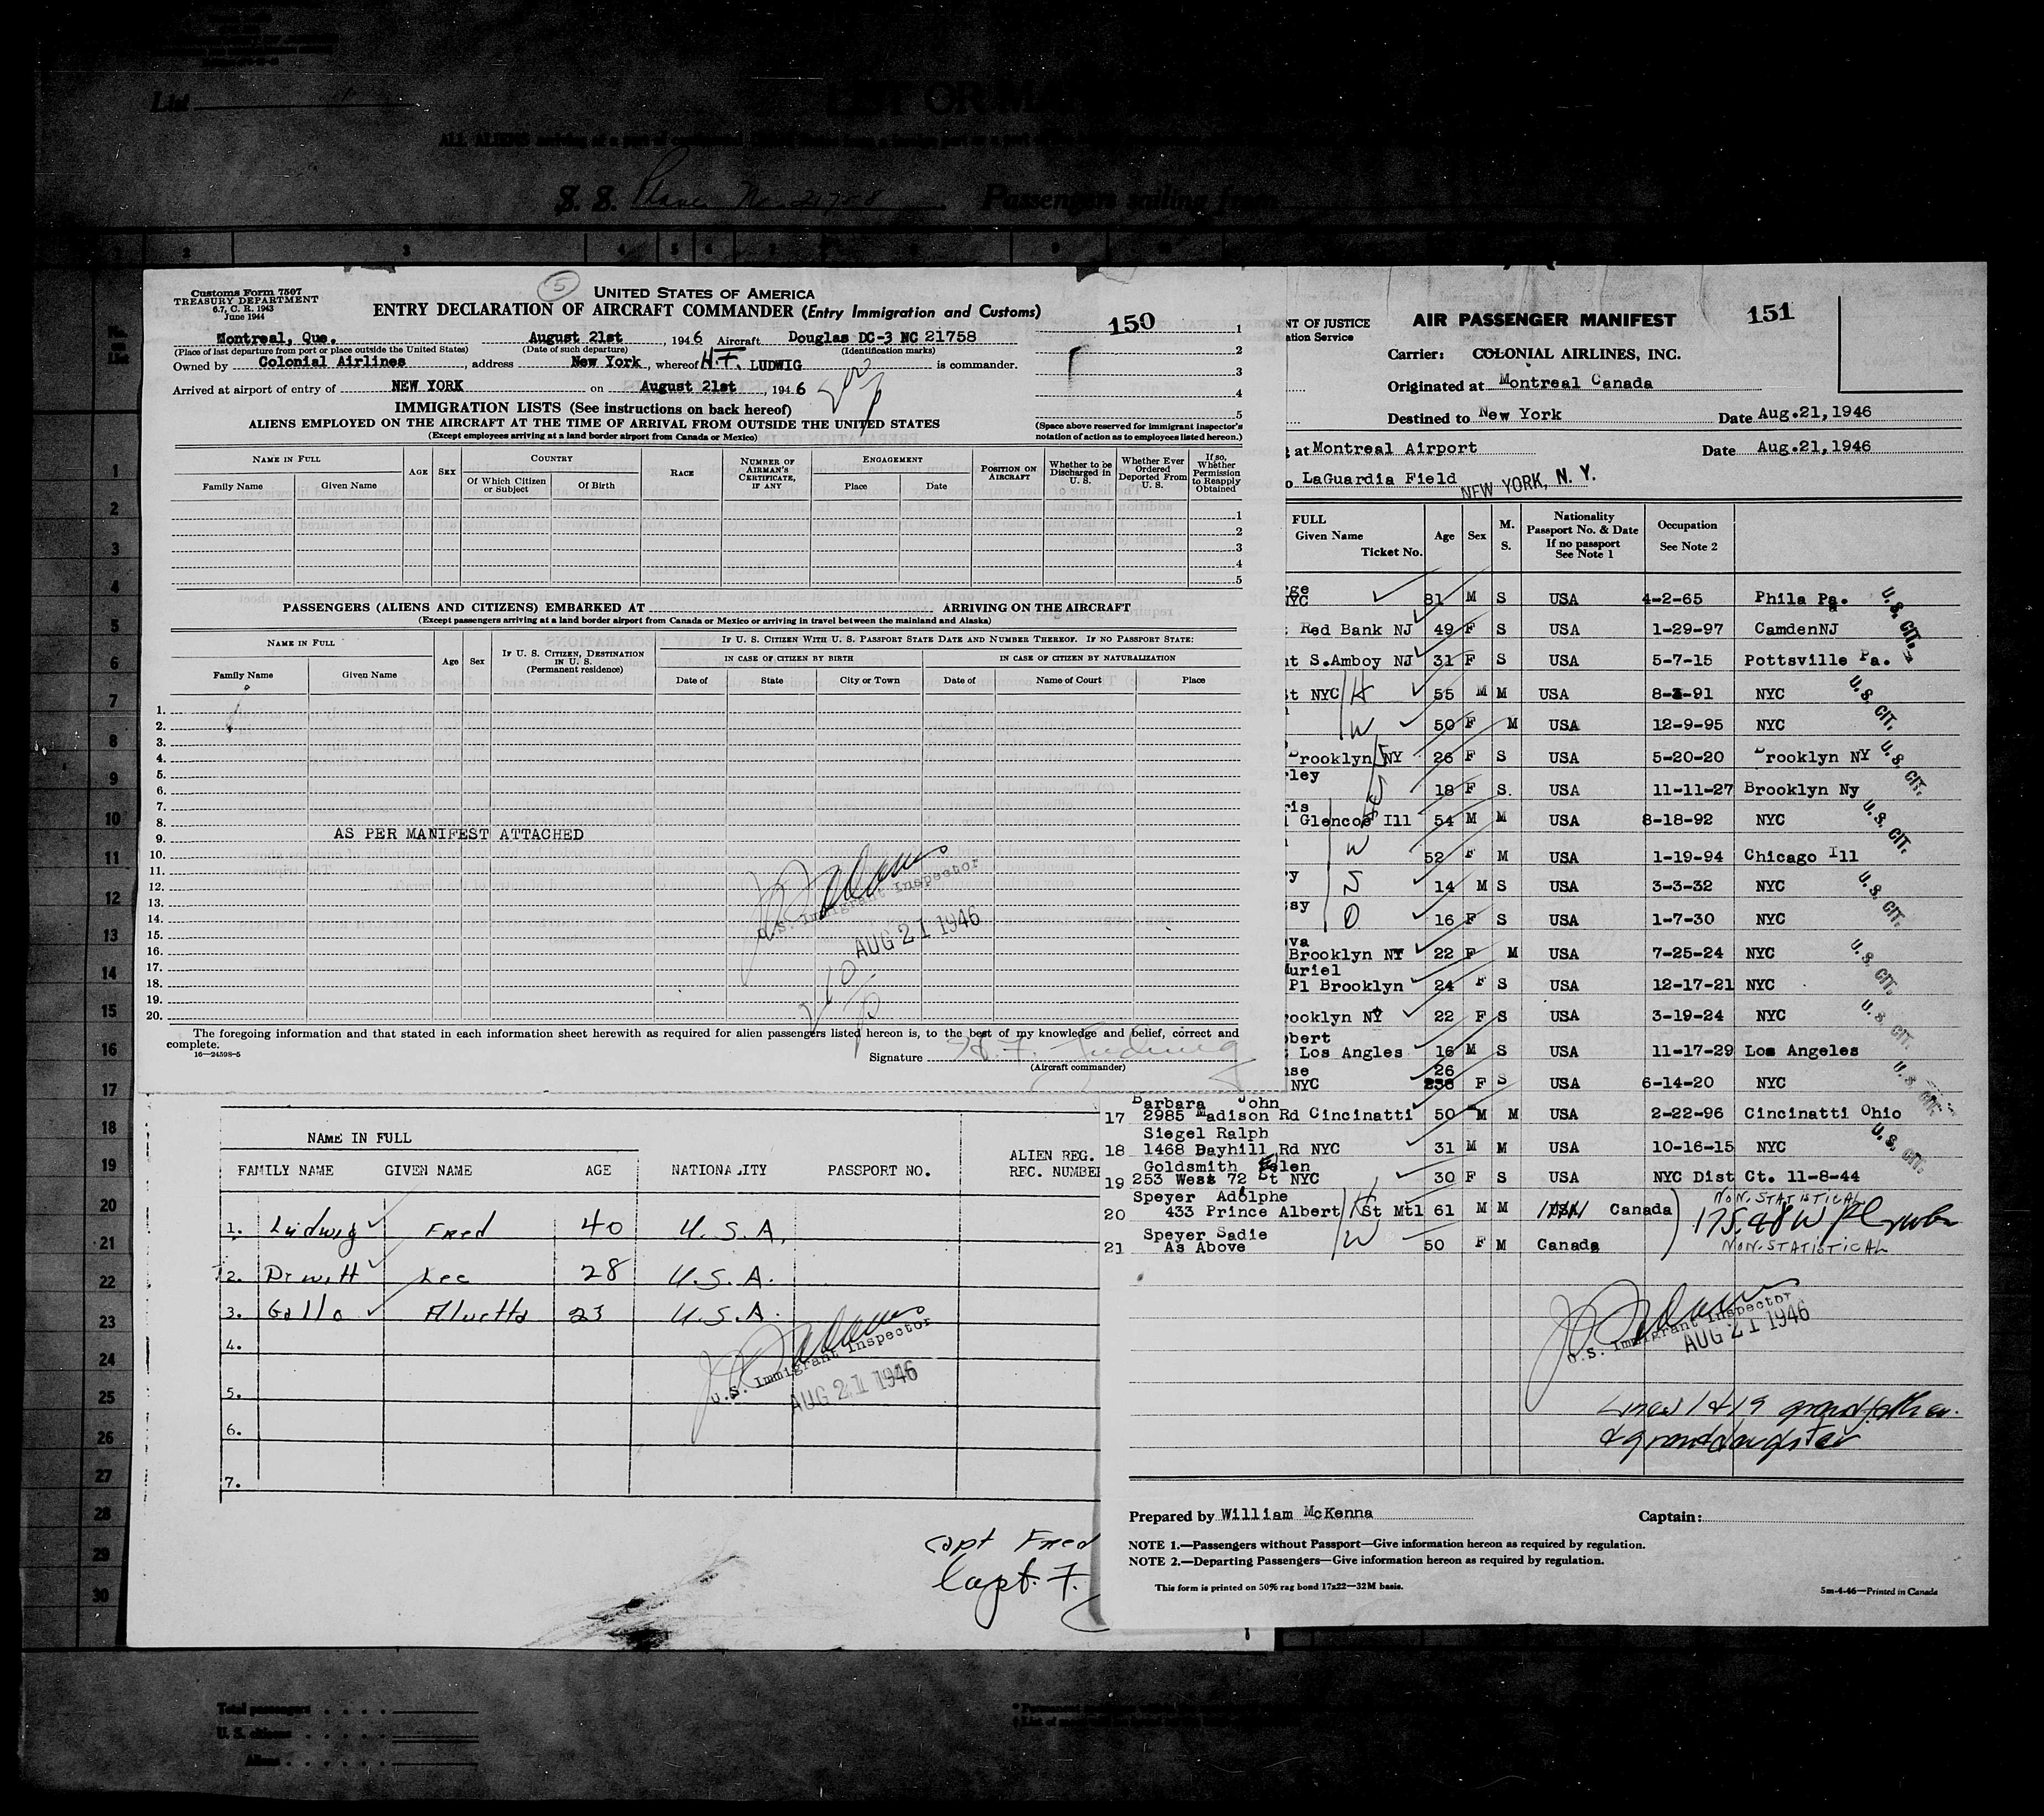 List
LIST OR MA
ALL ALIENS
S. S. Plane No. 21758 Passengers sailing from
Customs Form 7507
TREASURY DEPARTMENT
6.7, C. R. 1943
June 1944
5
UNITED STATES OF AMERICA
ENTRY DECLARATION OF AIRCRAFT COMMANDER (Entry Immigration and Customs)
150
Montreal, Que. August 21st, 1946 Aircraft Douglas DC-3 NC 21758
(Place of last departure from port or place outside the United States) (Date of such departure) (Identification marks)
Owned by Colonial Airlines, address New York, whereof H.F. LUDWIG is commander.
Arrived at airport of entry of NEW YORK on August 21st, 1946
IMMIGRATION LISTS (See instructions on back hereof)
ALIENS EMPLOYED ON THE AIRCRAFT AT THE TIME OF ARRIVAL FROM OUTSIDE THE UNITED STATES
(Except employees arriving at a land border airport from Canada or Mexico)
1
2
3
4
5
(Space above reserved for immigrant inspector's
notation of action as to employees listed hereon.)
NAME IN FULL AGE SEX COUNTRY RACE NUMBER OF AIRMAN'S CERTIFICATE, IF ANY ENGAGEMENT POSITION ON AIRCRAFT Whether to be Discharged in U. S. Whether Ever Ordered Deported From U. S. If so, Whether Permission to Reapply Obtained
Family Name Given Name Of Which Citizen or Subject Of Birth Place Date
1
2
3
4
5
PASSENGERS (ALIENS AND CITIZENS) EMBARKED AT ARRIVING ON THE AIRCRAFT
(Except passengers arriving at a land border airport from Canada or Mexico or arriving in travel between the mainland and Alaska)
NAME IN FULL Age Sex IF U. S. CITIZEN, DESTINATION IN U. S. (Permanent residence) IF U. S. CITIZEN WITH U. S. PASSPORT STATE DATE AND NUMBER THEREOF. IF NO PASSPORT STATE:
IN CASE OF CITIZEN BY BIRTH IN CASE OF CITIZEN BY NATURALIZATION
Family Name Given Name Date of State City or Town Date of Name of Court Place
1.
2.
3.
4.
5.
6.
7.
8.
AS PER MANIFEST ATTACHED
9.
10.
11.
12.
13.
14.
15.
16.
17.
18.
19.
20.
U.S. Immigrant Inspector
AUG 21 1946
The foregoing information and that stated in each information sheet herewith as required for alien passengers listed hereon is, to the best of my knowledge and belief, correct and
complete.
16—24598-5
Signature H. F. Ludwig
(Aircraft commander)
NAME IN FULL
FAMILY NAME GIVEN NAME AGE NATIONALITY PASSPORT NO. ALIEN REG. REC. NUMBER
1. Ludwig Fred 40 U.S.A.
2. Dewitt Lee 28 U.S.A.
3. Gallo 23 U.S.A.
4.
5.
6.
7.
U.S. Immigrant Inspector
AUG 21 1946
Capt Fred
Capt. F.
NT OF JUSTICE
ation Service
AIR PASSENGER MANIFEST
151
Carrier: COLONIAL AIRLINES, INC.
Originated at Montreal Canada
Destined to New York Date Aug.21,1946
at Montreal Airport Date Aug.21,1946
o LaGuardia Field NEW YORK, N. Y.
FULL Given Name Ticket No. Age Sex M. S. Nationality Passport No. & Date If no passport See Note 1 Occupation See Note 2
rge
NYC 81 M S USA 4-2-65 Phila Pa. U.S. CIT.
Red Bank NJ 49 F S USA 1-29-97 CamdenNJ
nt S.Amboy NJ 31 F S USA 5-7-15 Pottsville Pa.
St NYC H 55 M M USA 8-3-91 NYC U.S. CIT.
W 50 F M USA 12-9-95 NYC
Brooklyn NY 26 F S USA 5-20-20 Brooklyn NY U.S. CIT.
rley
18 F S. USA 11-11-27 Brooklyn Ny
ris
Glencoe Ill 54 M M USA 8-18-92 NYC U.S. CIT.
W 52 F M USA 1-19-94 Chicago Ill
ry S 14 M S USA 3-3-32 NYC U.S. CIT.
say D 16 F S USA 1-7-30 NYC
va
Brooklyn NY 22 F M USA 7-25-24 NYC U.S. CIT.
Muriel
Pl Brooklyn 24 F S USA 12-17-21 NYC
ooklyn NY 22 F S USA 3-19-24 NYC U.S. CIT.
obert
Los Angles 16 M S USA 11-17-29 Los Angeles
ise 26
NYC F S USA 6-14-20 NYC U.S. CIT.
Barbara John
17 2985 Madison Rd Cincinatti 50 M M USA 2-22-96 Cincinatti Ohio
Siegel Ralph
18 1468 Bayhill Rd NYC 31 M M USA 10-16-15 NYC U.S. CIT.
Goldsmith Helen
19 253 West 72 St NYC 30 F S USA NYC Dist Ct. 11-8-44
Speyer Adolphe NON. STATISTICAL
20 433 Prince Albert St Mtl H 61 M M USA Canada
Speyer Sadie
21 As Above W 50 F M Canada NON-STATISTICAL
U.S. Immigrant Inspector
AUG 21 1946
Lines 1 & 19 grandfather
& granddaughter
Prepared by William McKenna Captain:
NOTE 1.—Passengers without Passport—Give information hereon as required by regulation.
NOTE 2.—Departing Passengers—Give information hereon as required by regulation.
This form is printed on 50% rag bond 17x22—32M basis. 5m-4-46—Printed in Canada
Total passengers
U. S. citizens
Aliens